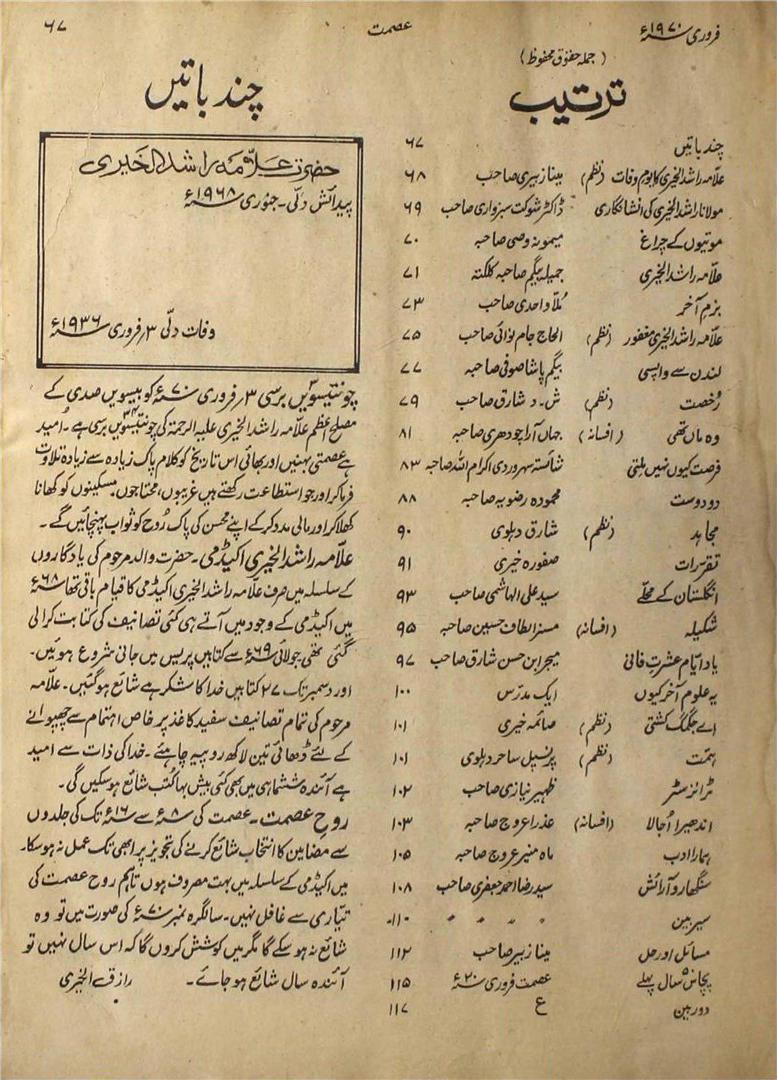 فروری ۱۹۷۰ء
عصمت
۶۷
(جملہ حقوق محفوظ)
ترتیب
چند باتیں ۶۷
علامہ راشد الخیری کا یوم وفات (نظم) مینا زبیری صاحب ۶۸
مولانا راشد الخیری کی انشا نگاری ڈاکٹر شوکت سبزواری صاحب ۶۹
موتیوں کے چراغ میمونہ وصی صاحبہ ۷۰
علامہ راشد الخیری جمیلہ بیگم صاحبہ کلکتہ ۷۱
بزم آخر مُلّا واحدی صاحب ۷۳
علامہ راشد الخیری مغفور (نظم) الحاج جام نوائی صاحب ۷۵
لندن سے واپسی بیگم پاشا صوفی صاحبہ ۷۷
رُخصت (نظم) ش۔ د شارق صاحب ۷۹
وہ ماں تھی (افسانہ) جہاں آرا چودھری صاحبہ ۸۱
فرصت کیوں نہیں ملتی شائستہ سہروردی اکرام اللہ صاحبہ ۸۳
دو دوست محمودہ رضویہ صاحبہ ۸۸
مجاہد (نظم) شارق دہلوی ۹۰
تقررات صفورہ خیری ۹۱
انگلستان کے محلّے سید علی الہاشمی صاحب ۹۳
شکیلہ (افسانہ) مسز الطاف حسین صاحبہ ۹۵
یاد ایّام عشرت فانی میجر ابن حسن شارق صاحب ۹۷
یہ علوم آخر کیوں ایک مدرّس ۱۰۰
اے جگمگ کشتی (نظم) صائمہ خیری ۱۰۱
ہمّت (نظم) پرنسپل ساحر دہلوی ۱۰۱
ٹرانزسٹر ظہیر نیازی صاحب ۱۰۲
اندھیرا اُجالا (افسانہ) عذرا عروج صاحبہ ۱۰۳
ہمارا ادب ماہ منیر عروج صاحبہ ۱۰۵
سنگھار و آرائش سید رضا احمد جعفری صاحب ۱۰۸
سیربین ۱۱۰
مسائل اور حل مینا زبیر صاحب ۱۱۲
پچاس سال پہلے عصمت فروری ۲۰ء ۱۱۵
دوربین ع ۱۱۷
چند باتیں
حضرت علّامہ راشد الخیری
پیدائش دلّی۔ جنوری ۱۹۶۸ء
وفات دلّی ۳؍ فروری ۱۹۳۶ء
چونتیسویں برسی ۳؍ فروری ۷۰ء کو بیسویں صدی کے
مصلح اعظم علّامہ راشد الخیری علیہ الرحمۃ کی چونتیسویں ۳۴ برسی ہے۔ اُمید
ہے عصمتی بہنیں اور بھائی اس تاریخ کو کلام پاک زیادہ سے زیادہ تلاوت
فرما کر اور جو استطاعت رکھتے ہیں غریبوں، محتاجوں، مسکینوں کو کھانا
کھلا کر اور مالی مدد کرکے اپنے محسن کی پاک رُوح کو ثواب پہنچائیں گے۔
علّامہ راشد الخیری اکیڈمی۔ حضرت والد مرحوم کی یادگاروں
کے سلسلہ میں صرف علّامہ راشد الخیری اکیڈمی کا قیام باقی تھا ۶۸ء
میں اکیڈمی کے وجود میں آتے ہی کئی تصانیف کی کتابت کرالی
گئی تھی۔ جولائی ۶۹ء سے کتابیں پریس میں جانی شروع ہوئیں۔
اور دسمبر تک ۲۷ کتابیں خدا کا شکر ہے شائع ہوگئیں۔ علّامہ
مرحوم کی تمام تصانیف سفید کاغذ پر خاص اہتمام سے چھپوانے
کے لئے ڈھائی تین لاکھ روپیہ چاہئے۔ خدا کی ذات سے امید
ہے آئندہ ششماہی میں بھی کئی بیش بہا کتب شائع ہوسکیں گی۔
روحِ عصمت۔ عصمت کی ۸ء سے ۱۶ء تک کی جلدوں
سے مضامین کا انتخاب شائع کرنے کی تجویز پر ابھی تک عمل نہ ہوسکا۔
میں اکیڈمی کے سلسلہ میں بہت مصروف ہوں تاہم روح عصمت کی
تیّاری سے غافل نہیں۔ سالگرہ نمبر ۷۰ء کی صورت میں تو وہ
شائع نہ ہو سکے گا مگر میں کوشش کروں گا کہ اس سال نہیں تو
آئندہ سال شائع ہو جائے۔ رازق الخیری